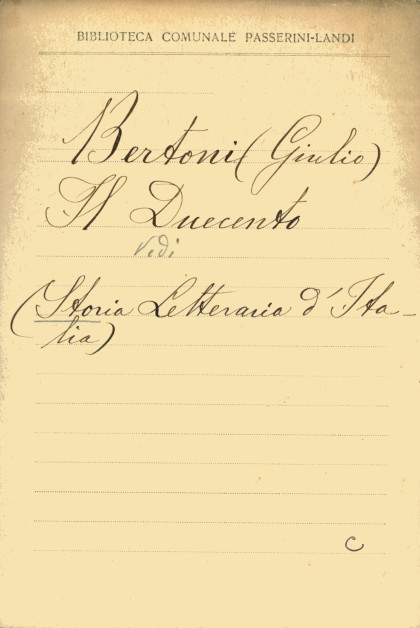 BIBLIOTECA COMUNALE PASSERINI-LANDI
Bertoni (Giulio)
Il Duecento
Vedi
(Storia Letteraria d'Ita-
lia)
C